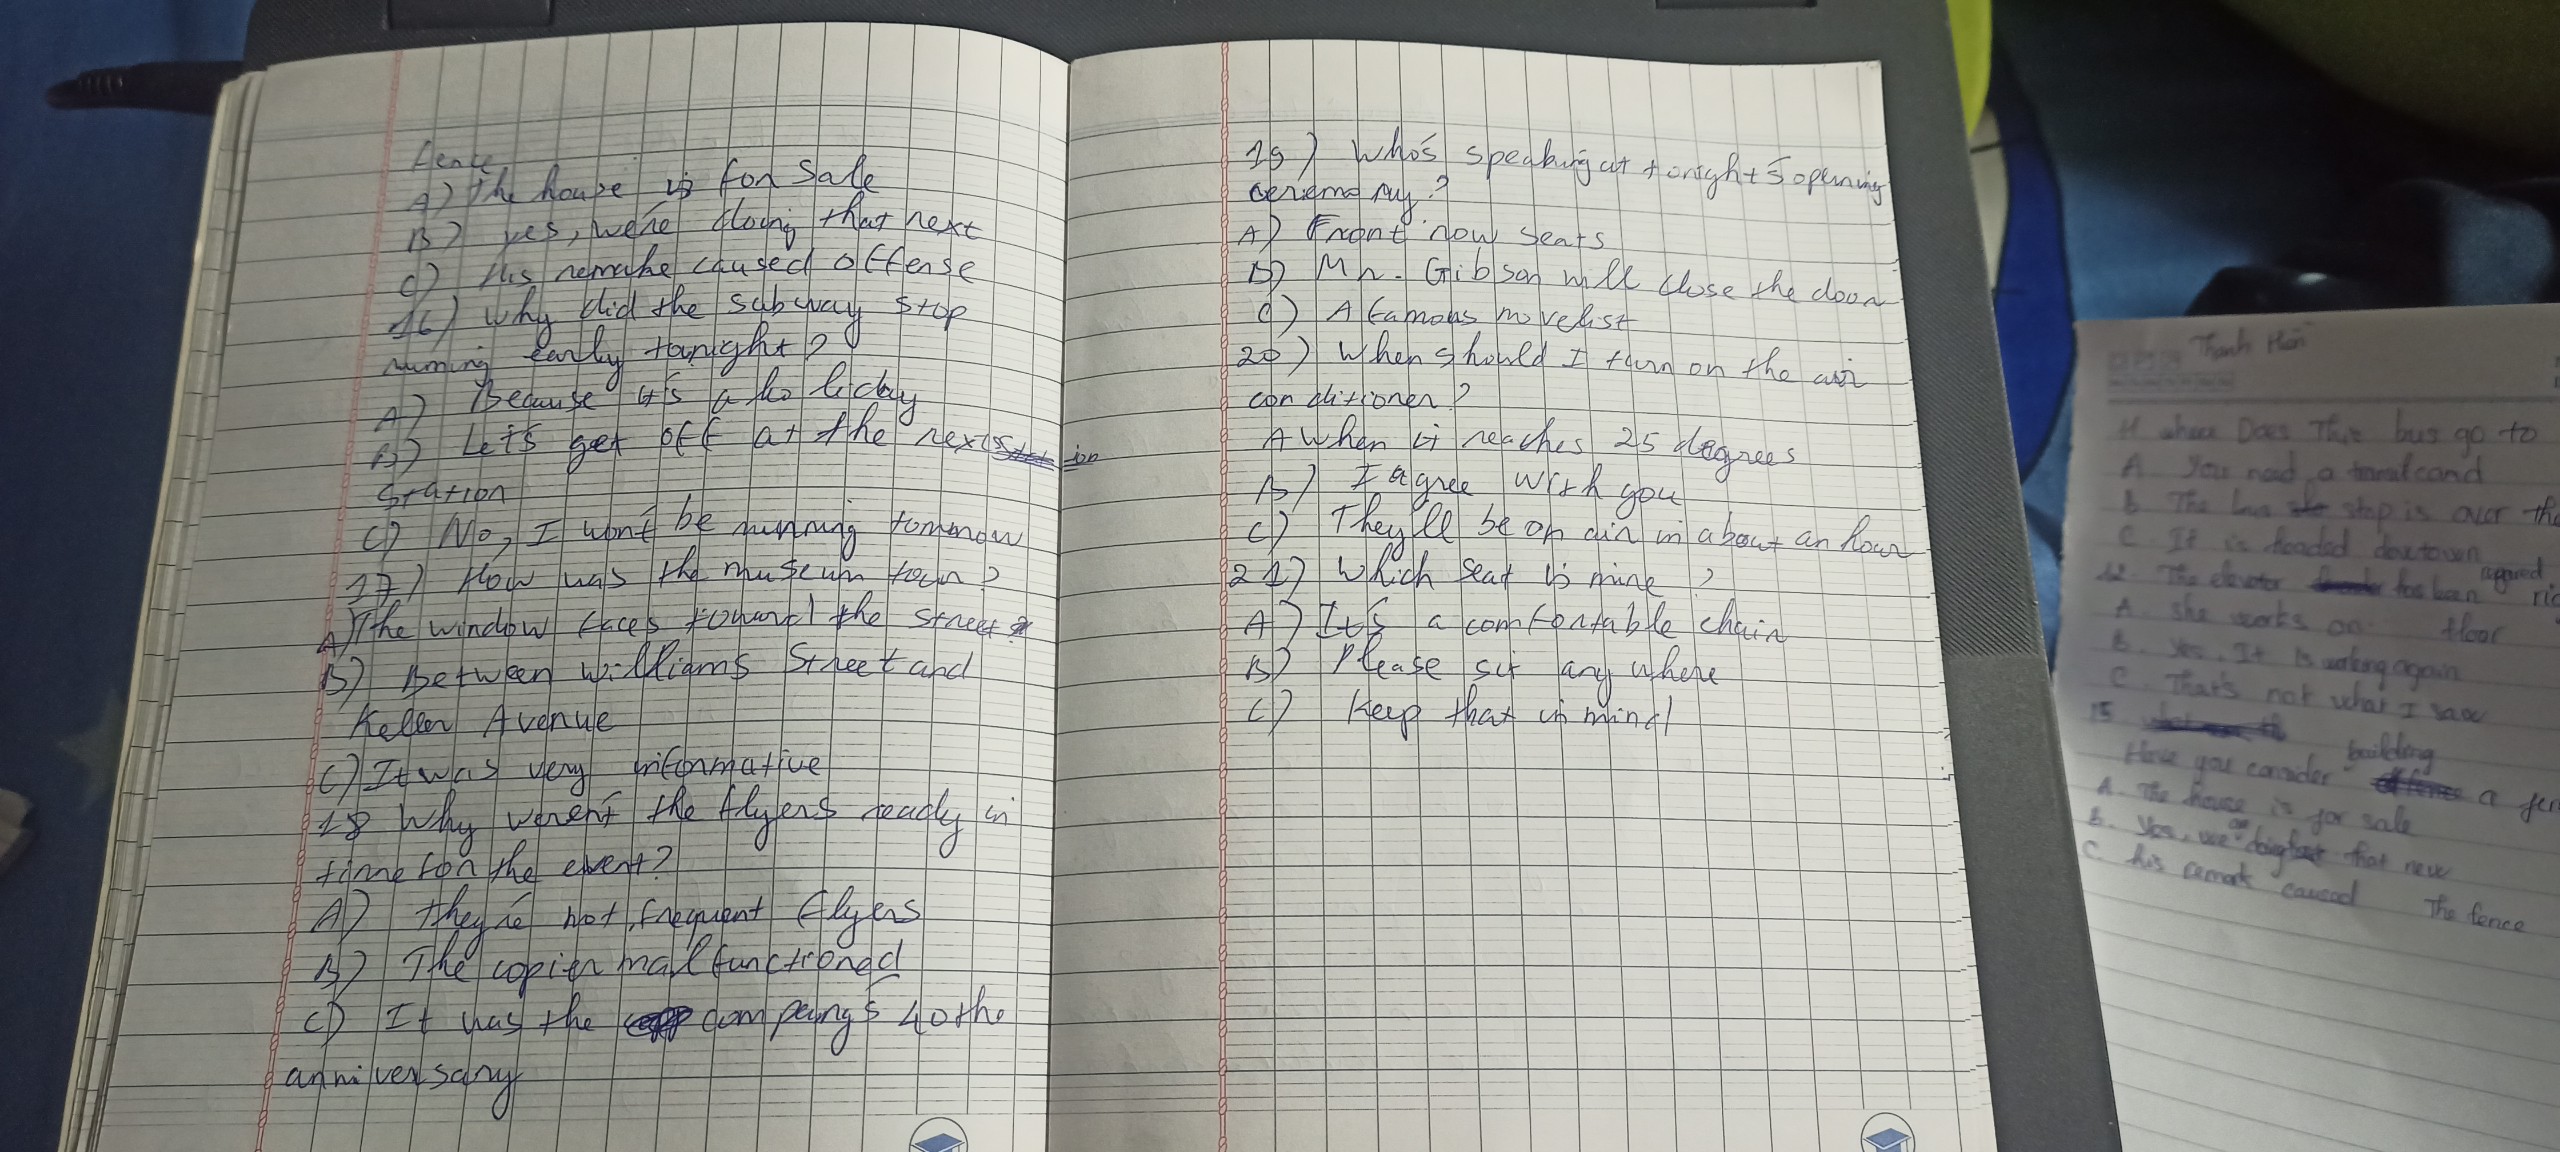 fence
A) The house is for sale
B) yes, we're doing that next
C) His remake caused offense
16) Why did the subway stop
running early tonight?
A) Because it's a holiday
B) Let's get off at the next
station
C) No, I won't be running tommorow
17) How was the museum tour?
A) The window faces toward the street
B) Between williams Street and
Keller Avenue
C) It was very informative
18 Why weren't the flyers ready in
time for the event?
A) they're not frequent flyers
B) The copier malfunctioned
C) It was the company's 40the
anniversary
19) Who's speaking at tonight's opening
ceremony?
A) Front row seats
B) Mr. Gibson will close the door
C) A famous movelist
20) When should I turn on the air
conditioner?
A When it reaches 25 degrees
B) I agree with you
C) They'll be on air in about an hour
21) Which seat is mine?
A) It's a comfortable chair
B) Please sit any where
C) Keep that in mind
Thanh Hiền
Does This bus go to
A. You need a
B. The bus stop is over
C. It is headed dowtown
The elevator has been
A. She works on floor
B. Yes, It is working again
C. That's not what I saw
15
building
Have you consider a
A. The house is for sale
B. Yes, we are doing that
C. his remark caused The fence